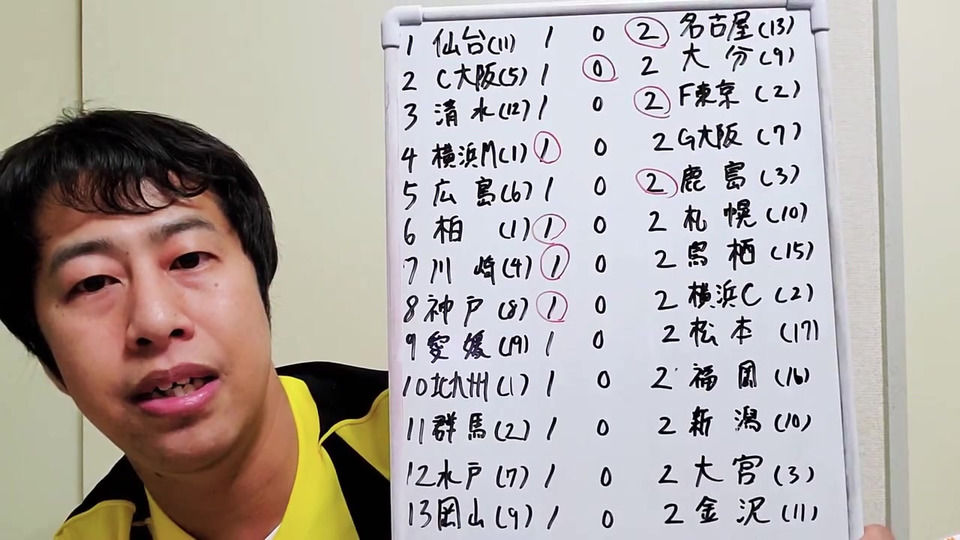 1 仙台(11) 1 0 2 名古屋(13)
2 C大阪(5) 1 0 2 大分(9)
3 清水(12) 1 0 2 F東京(2)
4 横浜M(1) 1 0 2 G大阪(7)
5 広島(6) 1 0 2 鹿島(3)
6 柏(1) 1 0 2 札幌(10)
7 川崎(4) 1 0 2 鳥栖(15)
8 神戸(8) 1 0 2 横浜C(2)
9 愛媛(19) 1 0 2 松本(17)
10 北九州(1) 1 0 2 福岡(16)
11 群馬(2) 1 0 2 新潟(10)
12 水戸(7) 1 0 2 大宮(3)
13 岡山(9) 1 0 2 金沢(11)